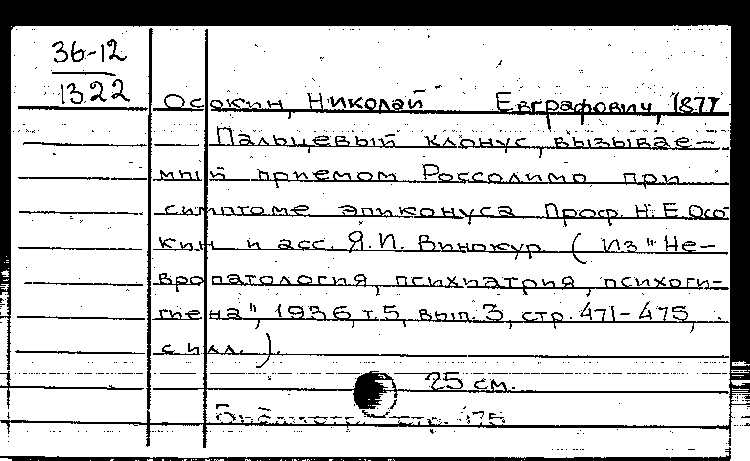 36-12
1322
Осокин, Николай Евграфович, 1877
Пальцевый клонус, вызывае-
мый приемом Россолимо при
симптоме эпиконуса Проф. Н.Е.Осо
кин и асс. Я.И. Винокур (Из "Не-
вропатология, психиатрия, психоги-
гиена", 1936, т.5, вып.3, стр.471-475,
с илл.).
25 см.
Библиогр. стр. 475